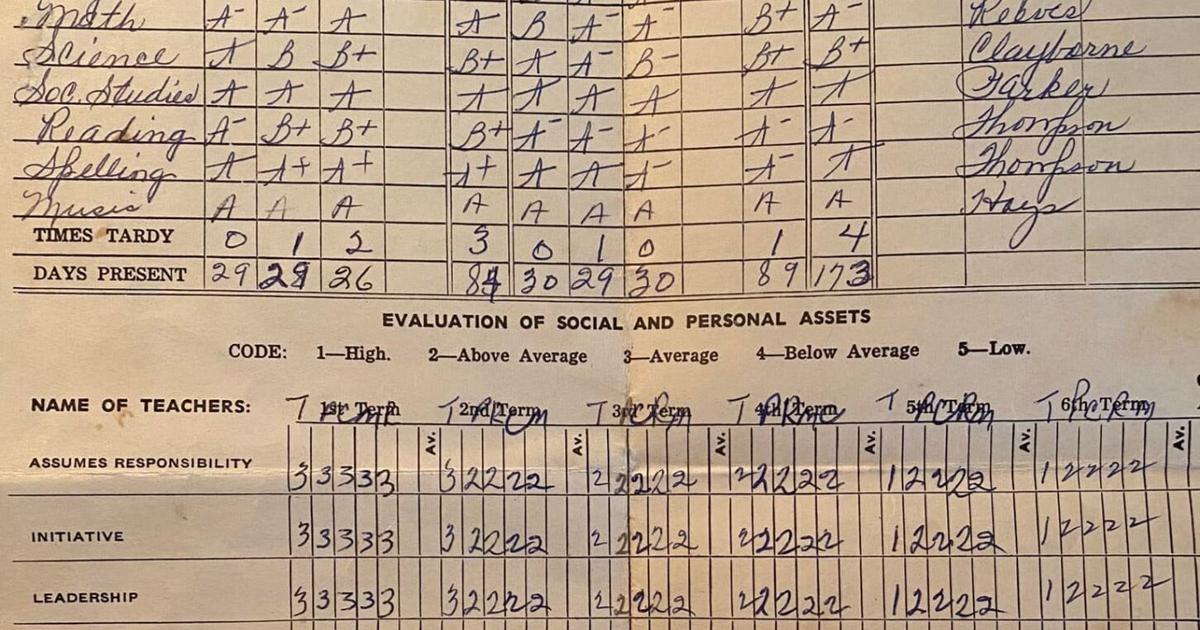 Math A- A- A A B A- A- B+ A- Reeves
Science A B B+ B+ A A- B- B+ B+ Clayborne
Soc. Studies A A A A A A A A A Parker
Reading A- B+ B+ B+ A- A- A- A- A- Thompson
Spelling A A+ A+ A+ A A A- A- A Thompson
Music A A A A A A A A A Hays
TIMES TARDY 0 1 2 3 0 1 0 1 4
DAYS PRESENT 29 29 26 84 30 29 30 89 173
EVALUATION OF SOCIAL AND PERSONAL ASSETS
CODE: 1—High. 2—Above Average 3—Average 4—Below Average 5—Low.
NAME OF TEACHERS: 1st Term 2nd Term 3rd Term 4th Term 5th Term 6th Term
Av. Av. Av. Av. Av. Av.
ASSUMES RESPONSIBILITY 3 3 3 3 3 3 2 2 2 2 2 2 2 2 2 2 2 2 2 2 1 2 2 2 2 1 2 2 2 2
INITIATIVE 3 3 3 3 3 3 2 2 2 2 2 2 2 2 2 2 2 2 2 2 1 2 2 2 2 1 2 2 2 2
LEADERSHIP 3 3 3 3 3 3 2 2 2 2 2 2 2 2 2 2 2 2 2 2 1 2 2 2 2 1 2 2 2 2